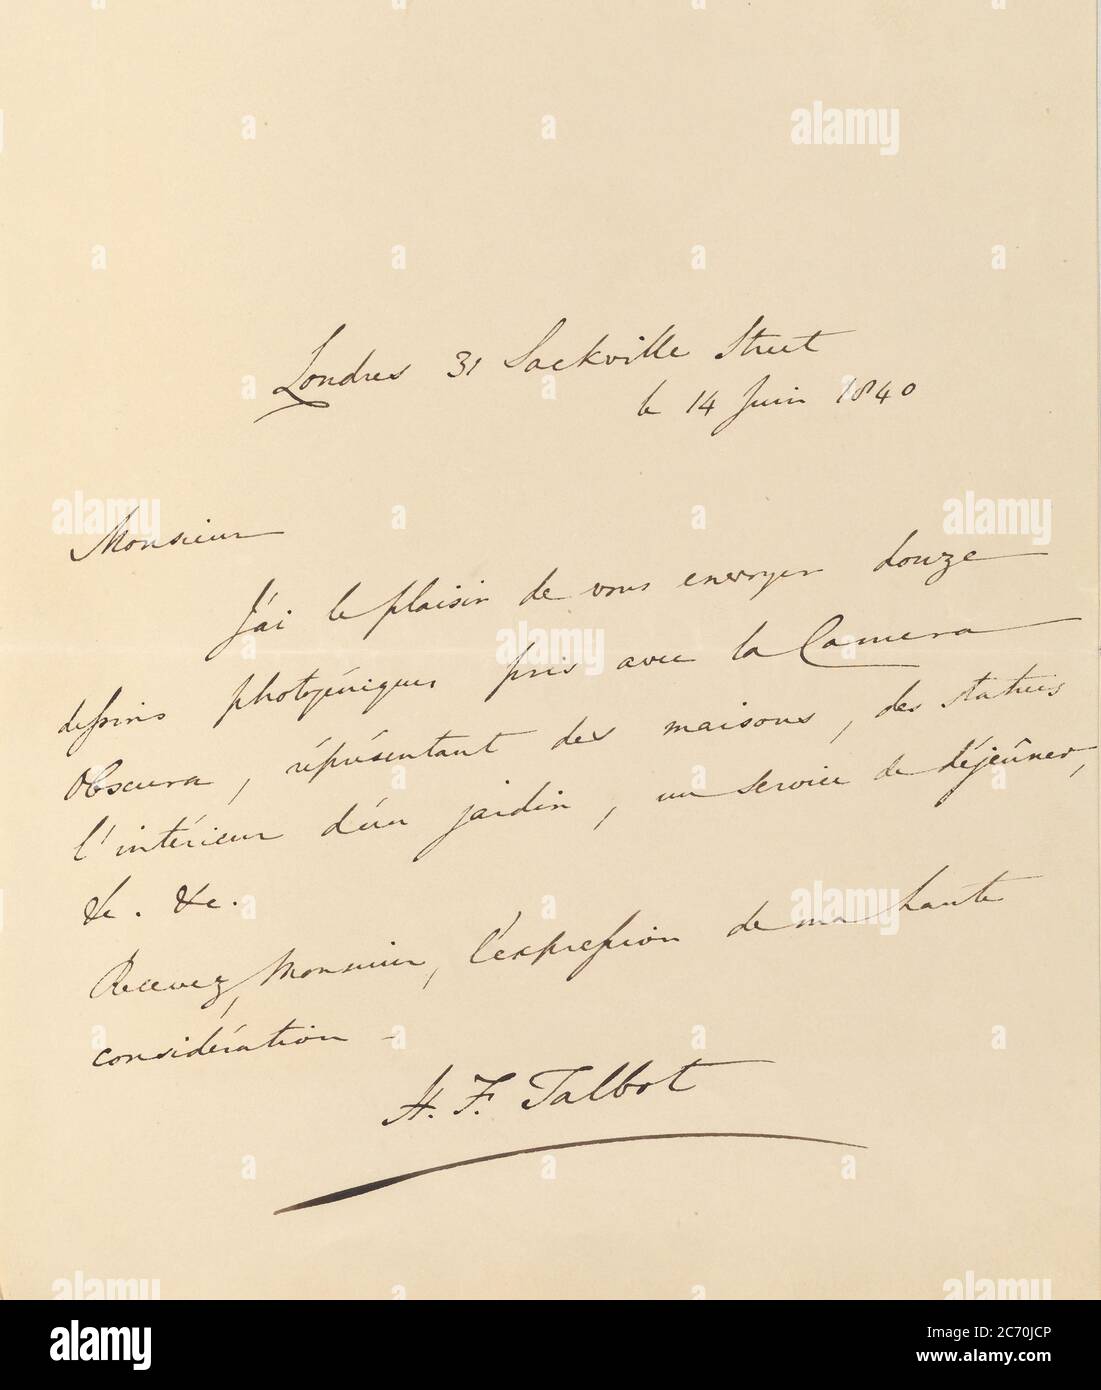 Londres 31 Sackville Street
le 14 Juin 1840
Monsieur
J'ai le plaisir de vous envoyer douze
dessins photogéniques pris avec la Camera
obscura, réprésentant des maisons, des statues
l'intérieur d'un jardin, un service de déjeûner,
&c. &c.
Recevez, Monsieur, l'expression de ma haute
considération -
H. F. Talbot
alamy
Image ID: 2C70JCP
www.alamy.com